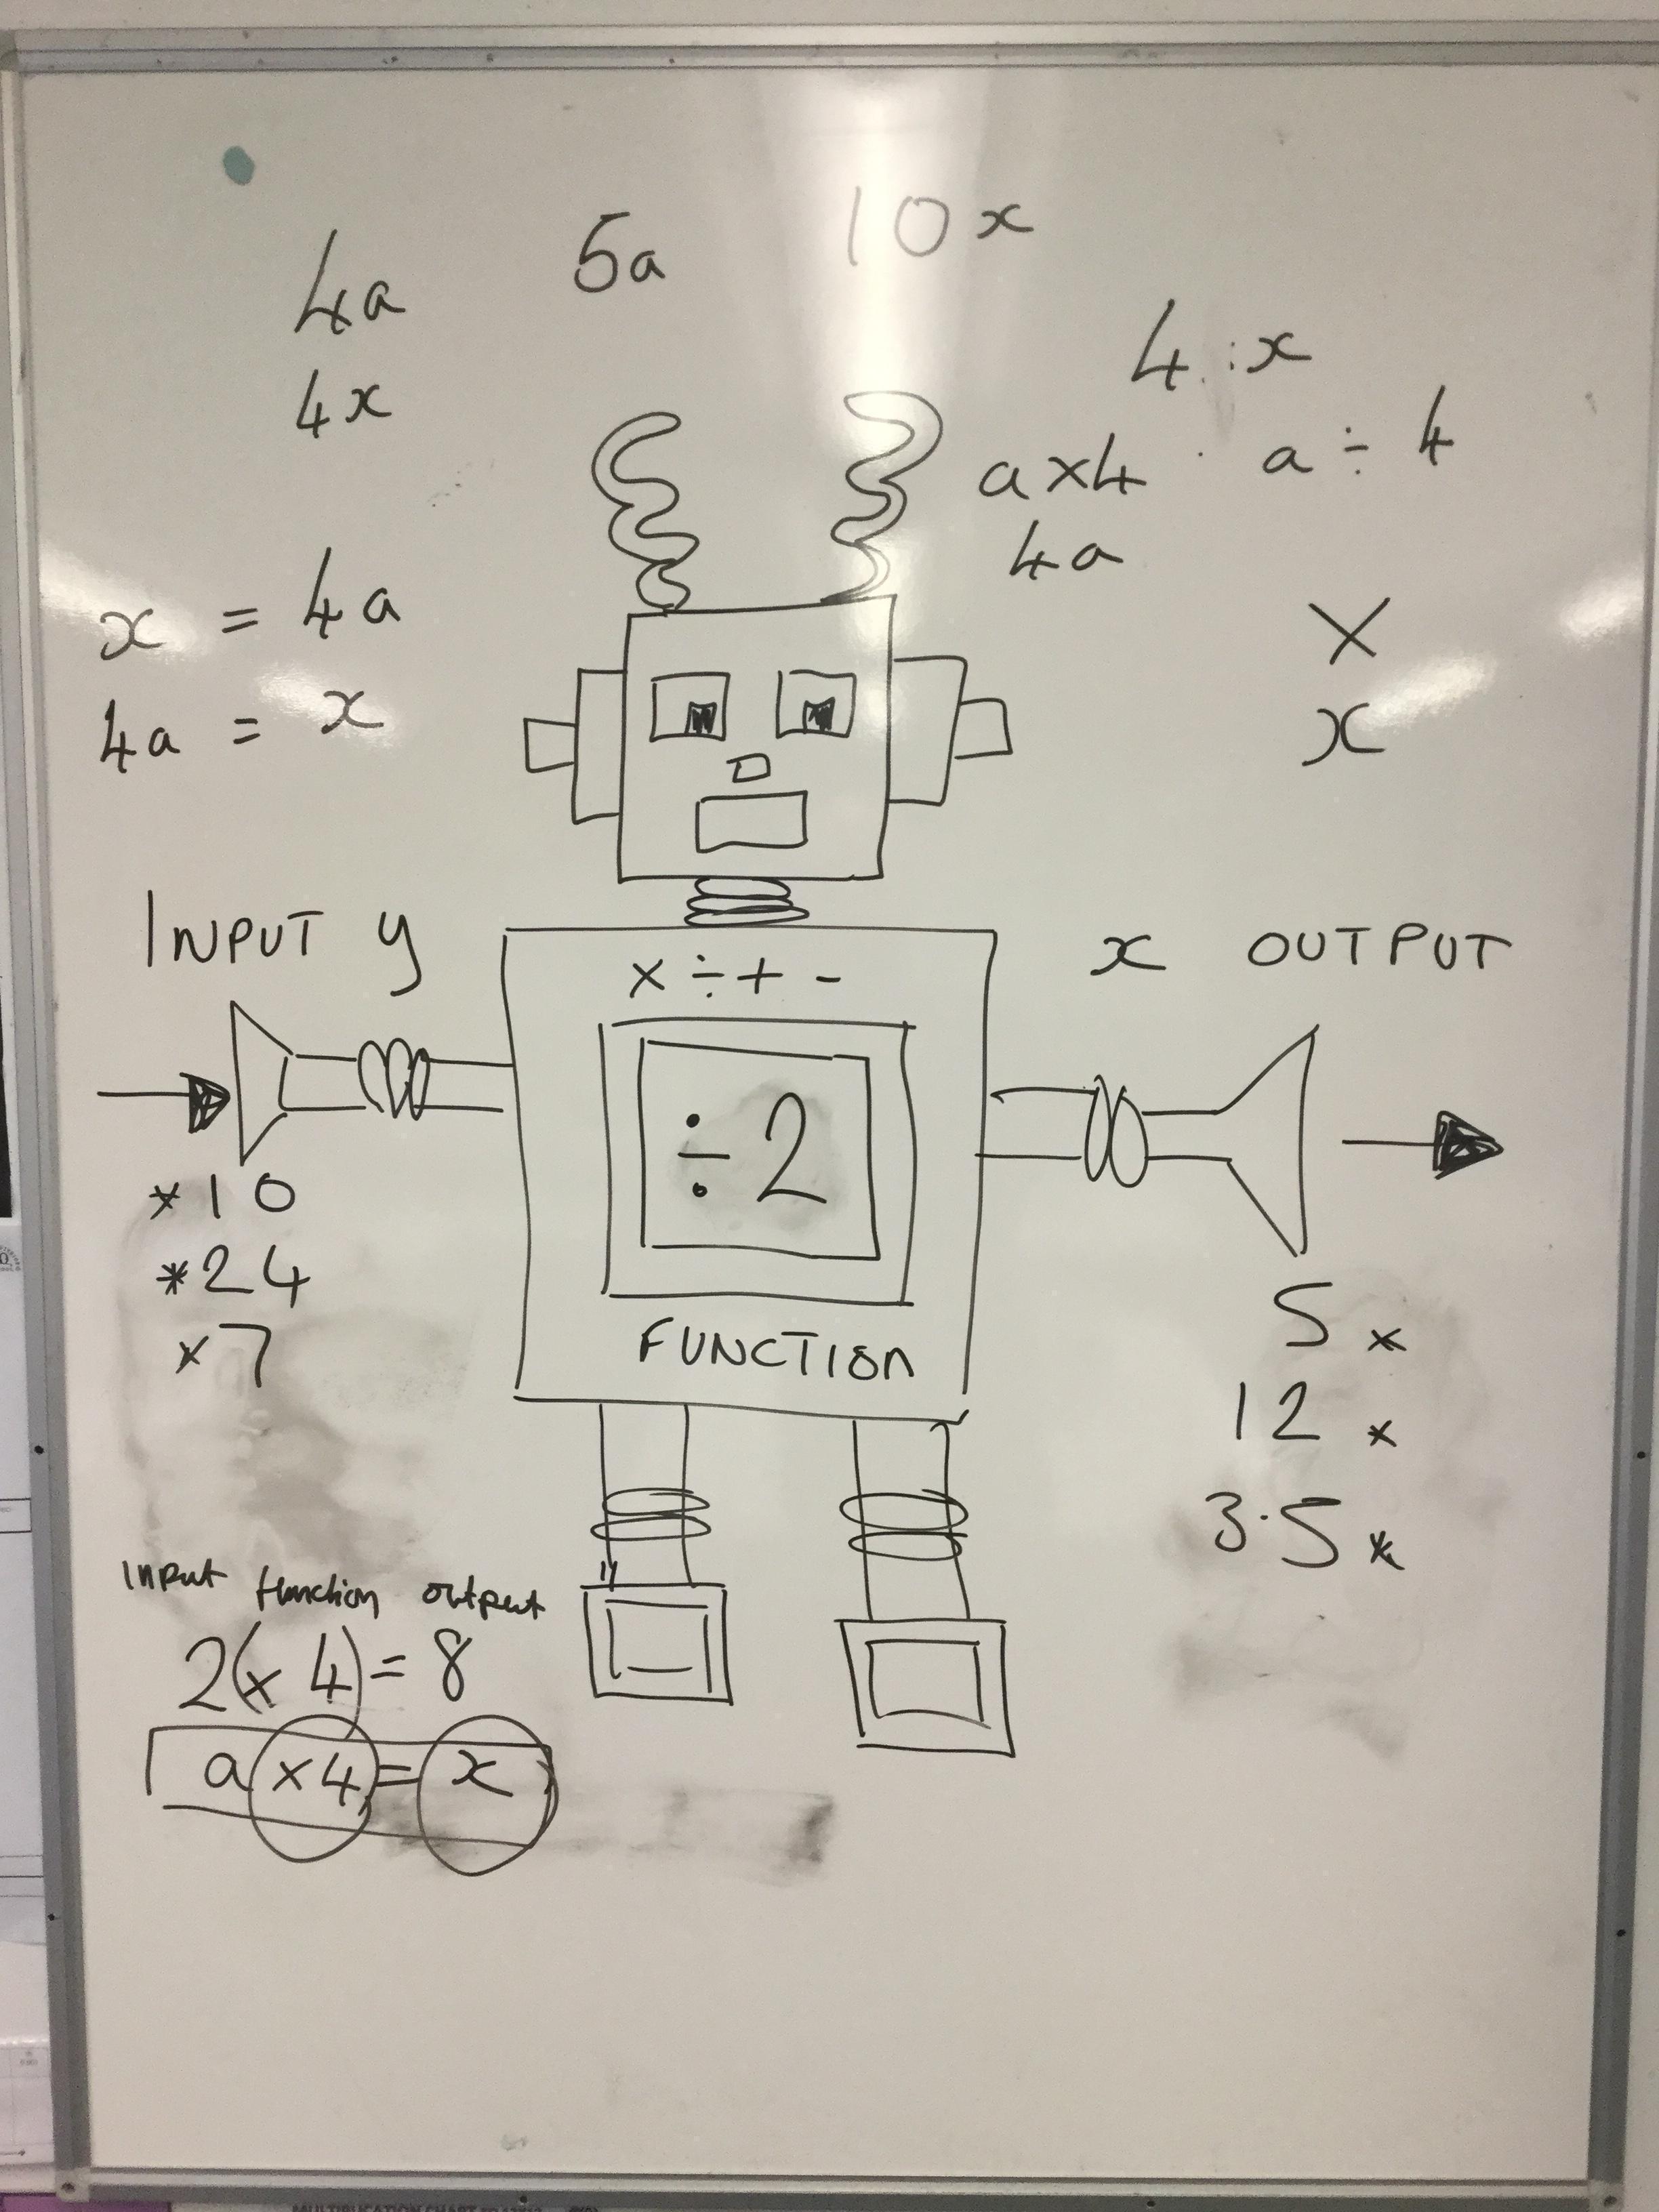 4a 5a 10x
4x
4 x
a×4 a ÷ 4
4a
x = 4a
4a = x
×
x
INPUT y
x OUTPUT
× ÷ + -
÷2
FUNCTION
*10
*24
×7
5 ×
12 ×
3·5 *
Input function output
2(× 4) = 8
a ×4 = x
MULTIPLICATION CHART